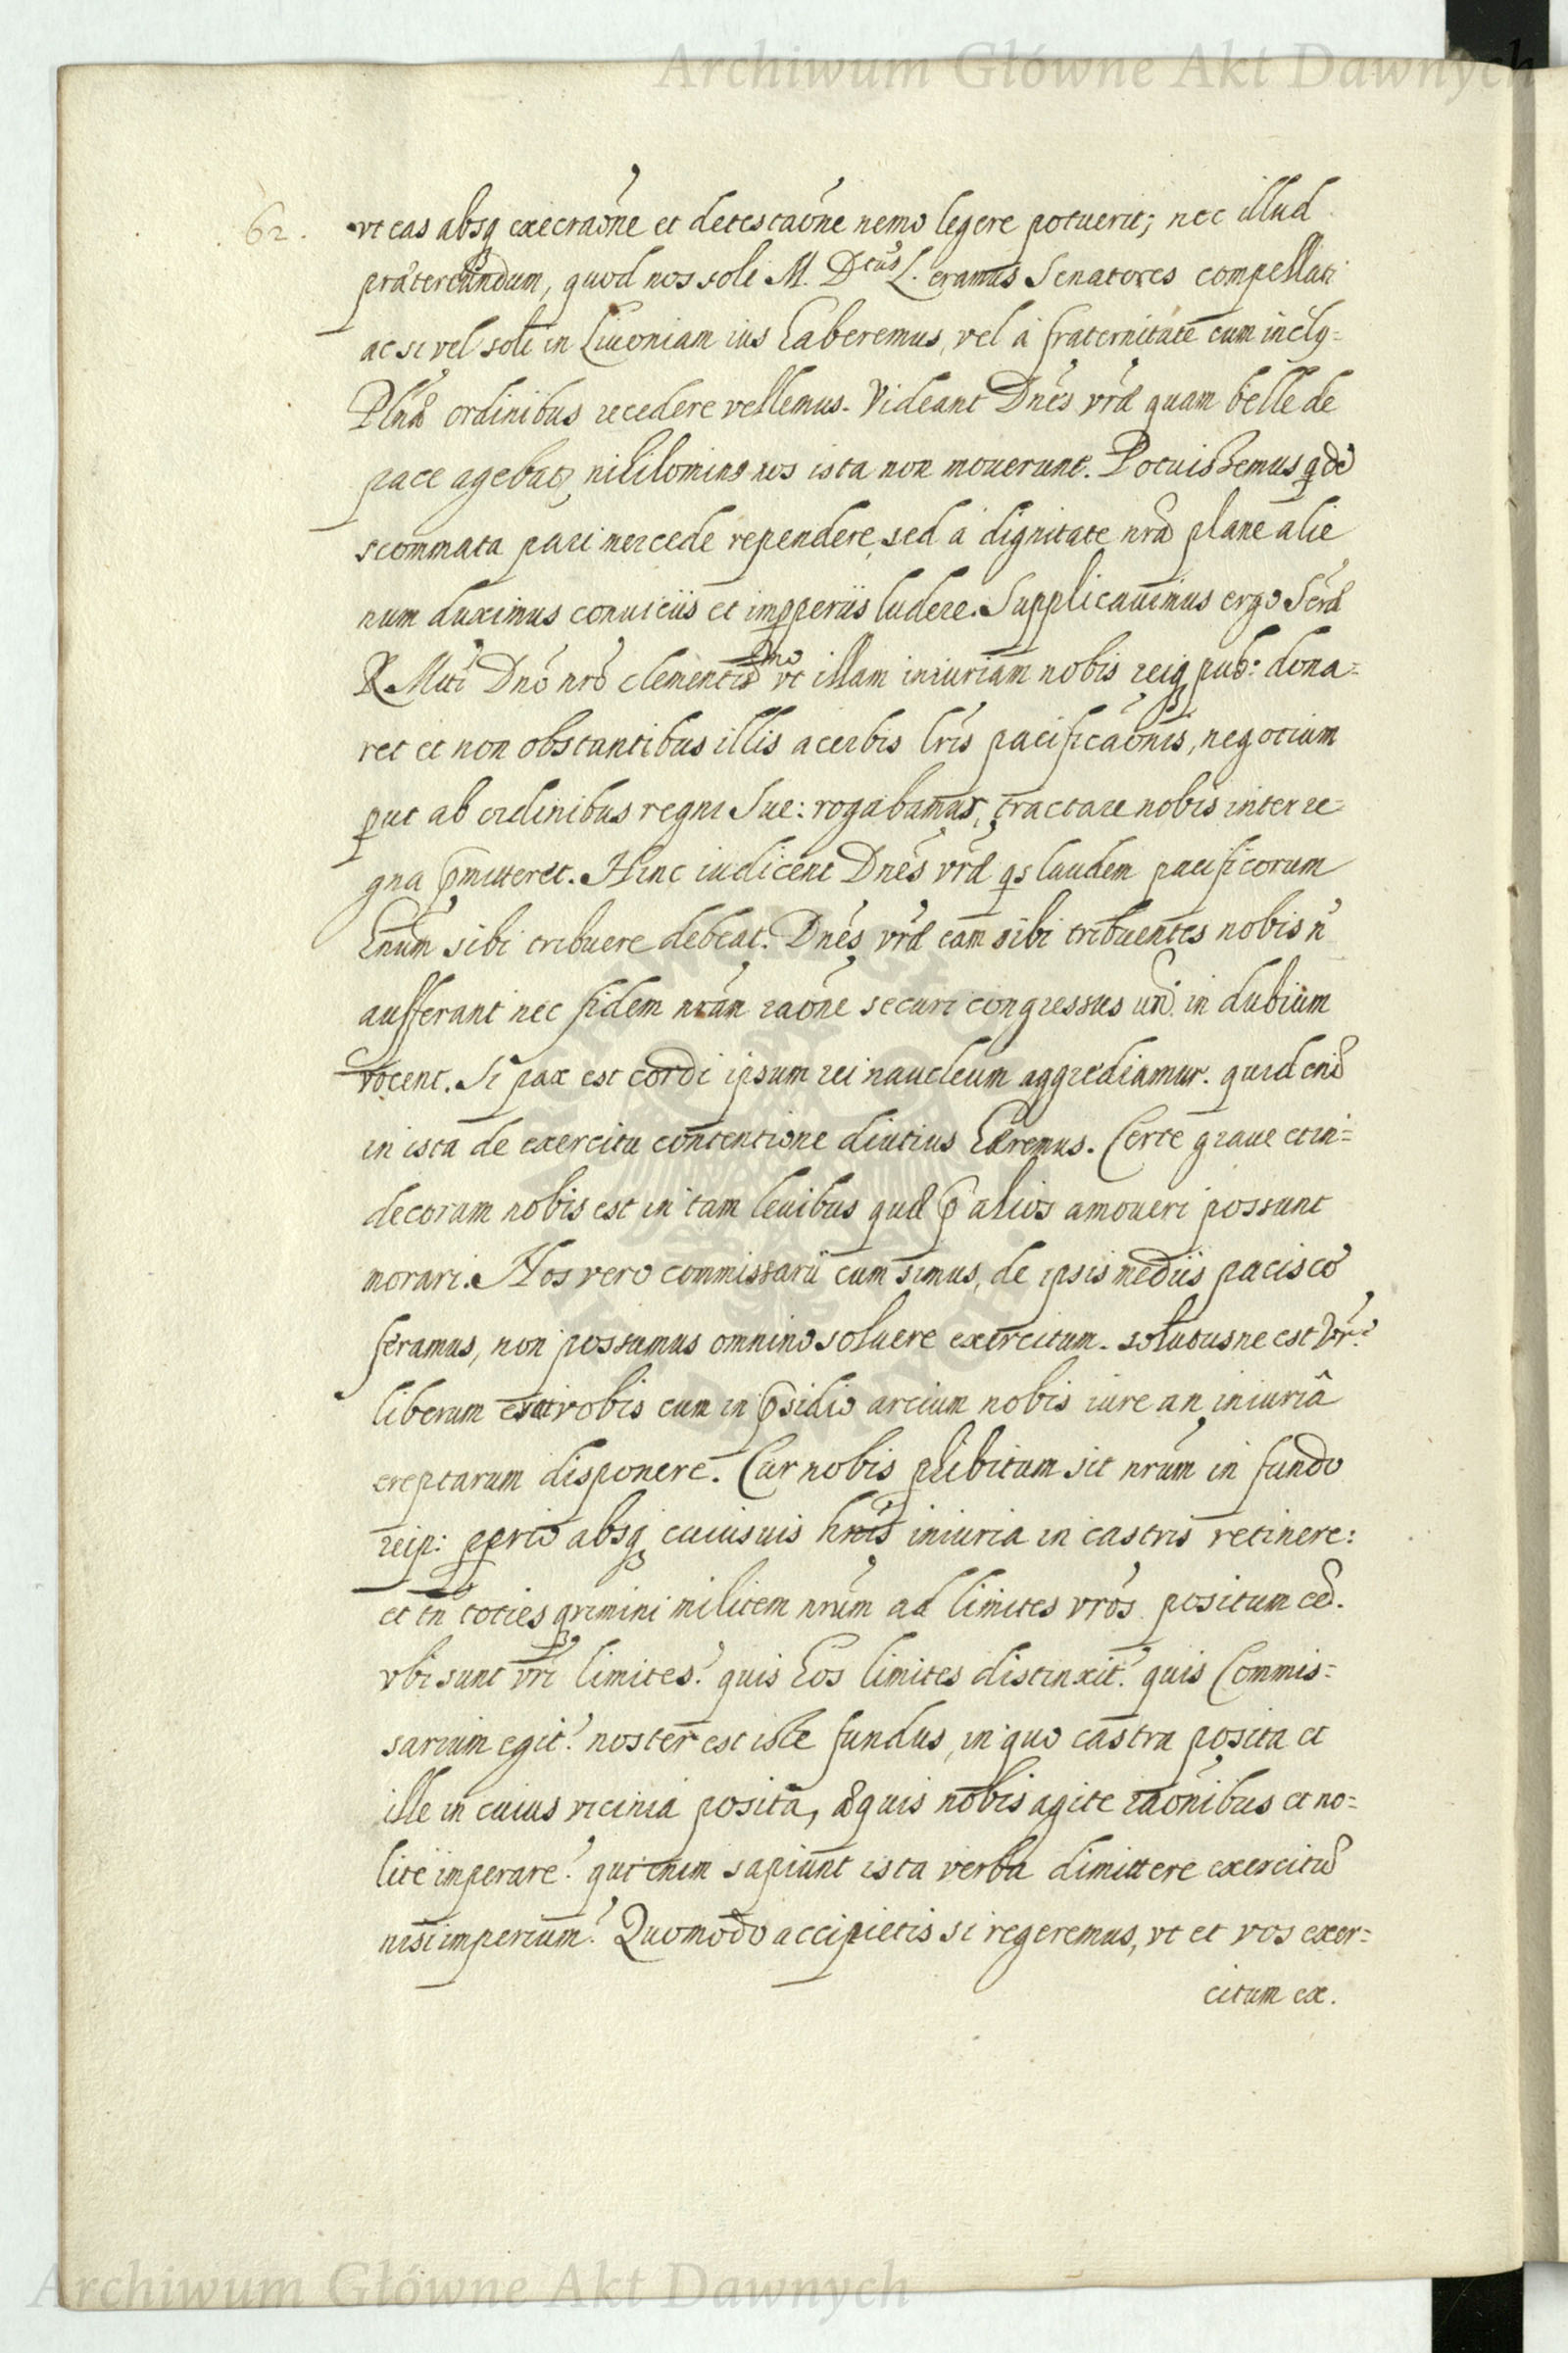 Archiwum Główne Akt Dawnych
62. vt eas absq execraõne et detestaõne nemo legere potuerit; nec illud
prætereundum, quod nos soli M. Dcus L. eramus Senatores compellati
ac si vel soli in Liuoniam ius haberemus, vel à fraternitate cum incly=
Plnæ ordinibus recedere vellemus. Videant Dnẽs vræ quam belle de
pace agebat, nihilominus nos ista non mouerunt. Potuissemus qdẽ
scommata pari mercede rependere, sed à dignitate nrã plane alie
num duximus conuiciis et improperiis ludere. Supplicauimus ergo Seræ
R Mtti Dnõ nrõ clementissimo vt illam iniuriam nobis reiq pub: dona=
ret et non obstantibus illis acerbis lrĩs pacificaõnis, negotium
put ab ordinibus regni Sue: rogabamur, tractare nobis inter re=
gna pmitteret. Hinc iudicent Dnẽs vræ qs laudem pacificorum
hnũm sibi tribuere debeat. Dnẽs vræ eam sibi tribuentes nobis ñ
aufferant nec fidem nrãm raõne securi congressus in dubium
vocent. Si pax est cordi ipsum rei naucleum aggrediamur. quid enĩ
in ista de exercitu contentione diutius hæremus. Certe graue et in=
decorum nobis est in tam leuibus quæ p alios amoueri possunt
morari. Nos vero commissarii cum simus, de ipsis mediis pacis cõ
feramus, non possumus omnino soluere exercitum. solutusne est vr̃
liberum erat vobis cum in psidio arcium nobis iure an iniuriâ
ereptarum disponere. Cur nobis phibitum sit nrũm in fundo
reip: pprio absq cuiusuis hnĩs iniuria in castris retinere:
et tñ toties qrimini militem nrũm ad limites vrõs positum eẽ.
vbi sunt vrĩ limites? quis hos limites distinxit? quis Commis=
sarium egit? noster est iste fundus, in quo castra posita et
ille in cuius vicinia posita, æquis nobis agite raõnibus et no=
lite imperare? qui enim sapiunt ista verba dimittere exercitũ
nisi imperium? Quomodo accipietis si regeremus, vt et vos exer=
citum ex.
Archiwum Główne Akt Dawnych